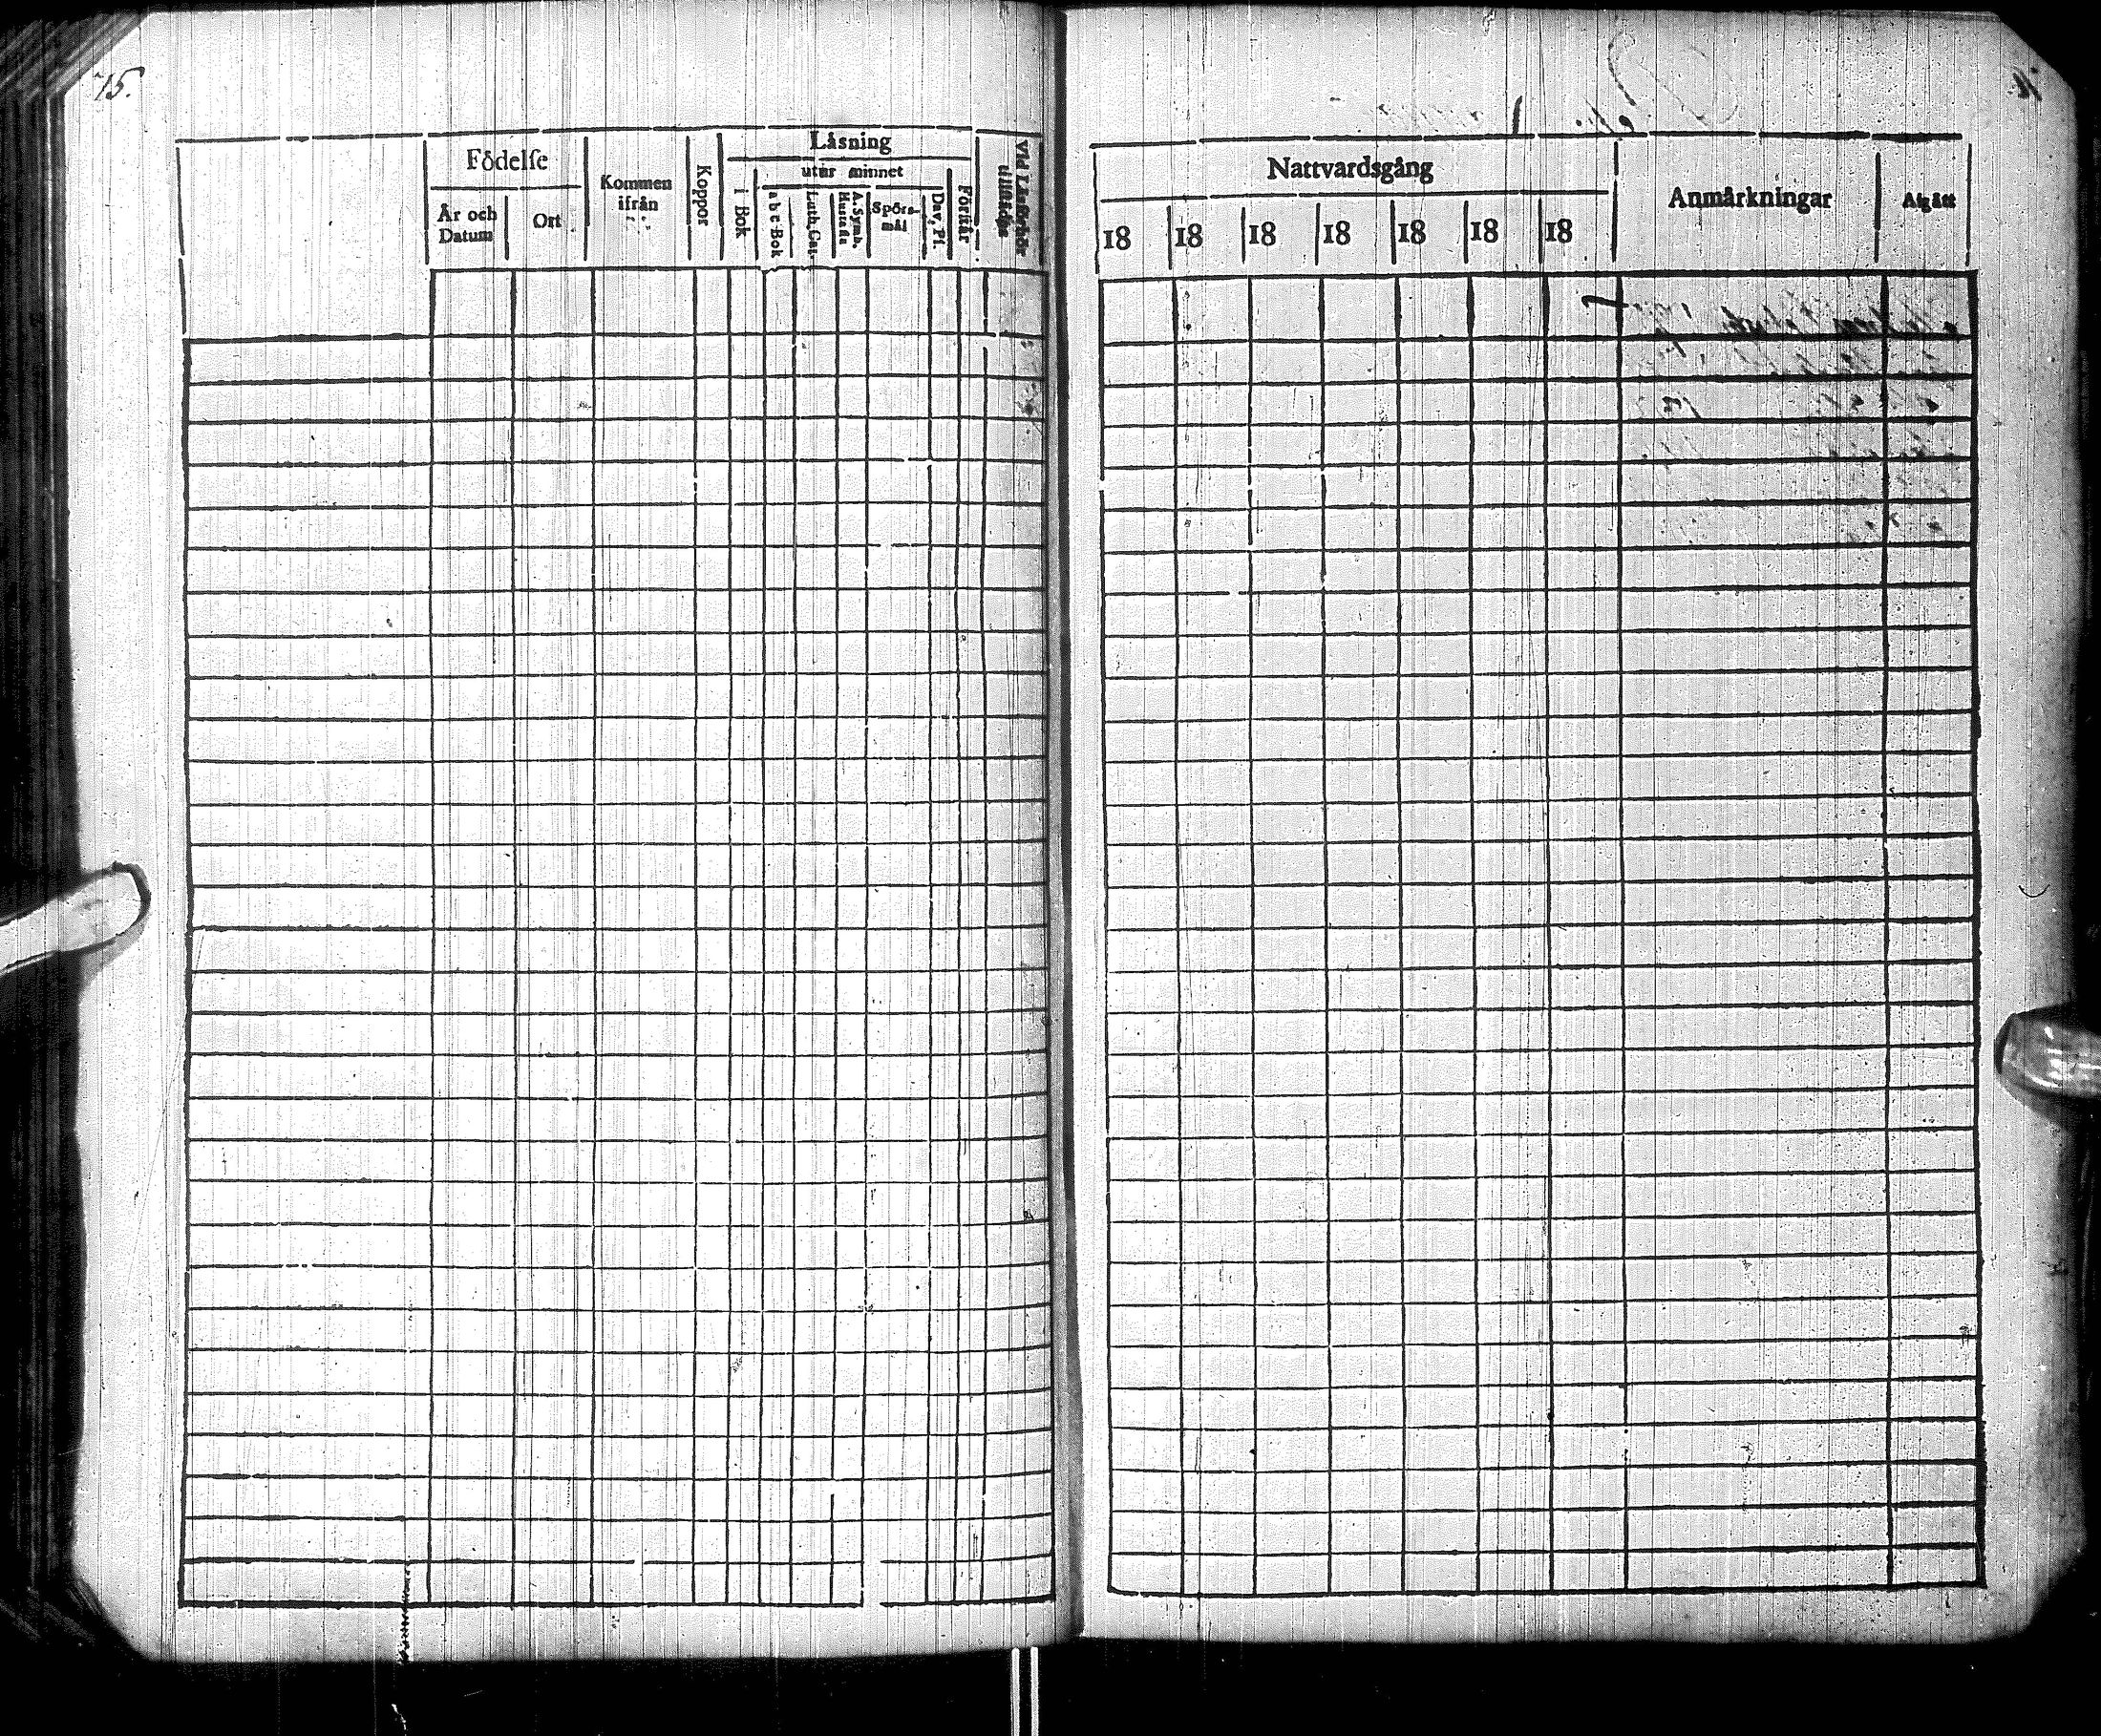 75.
Födelſe
År och
Datum
Ort
Kommen
ifrån
Koppor
Läsning
i Bok
utur minnet
a b c-Bok
Luth. Cat.
A. Symb.
Hustafla
Spörs-
mål
Dav. Ps.
Förstår
Vid Läsförhör
tillstädes
Nattvardsgång
18 18 18 18 18 18 18
Anmärkningar
Afgått